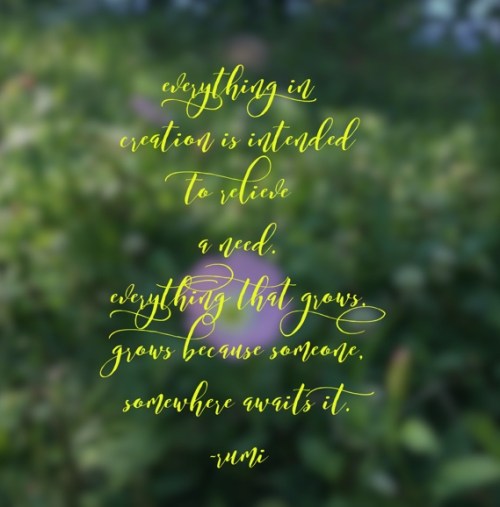 everything in
creation is intended
to relieve
a need.
everything that grows,
grows because someone,
somewhere awaits it.
-rumi